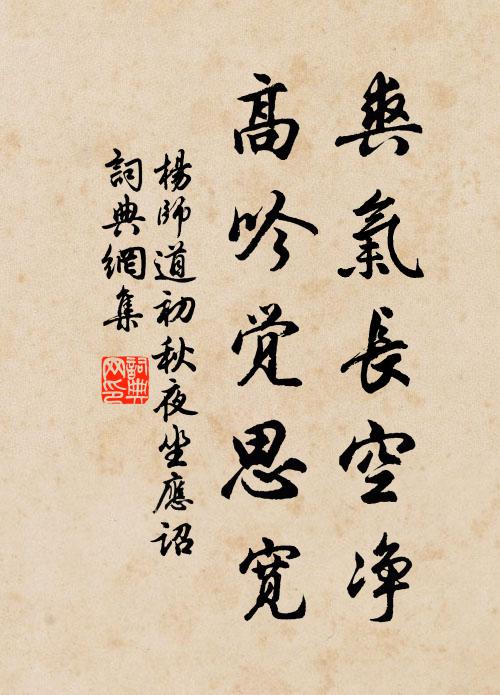 爽氣長空净
高吟觉思寬
楊師道初秋夜坐應詔
詞典網集
詞典网印